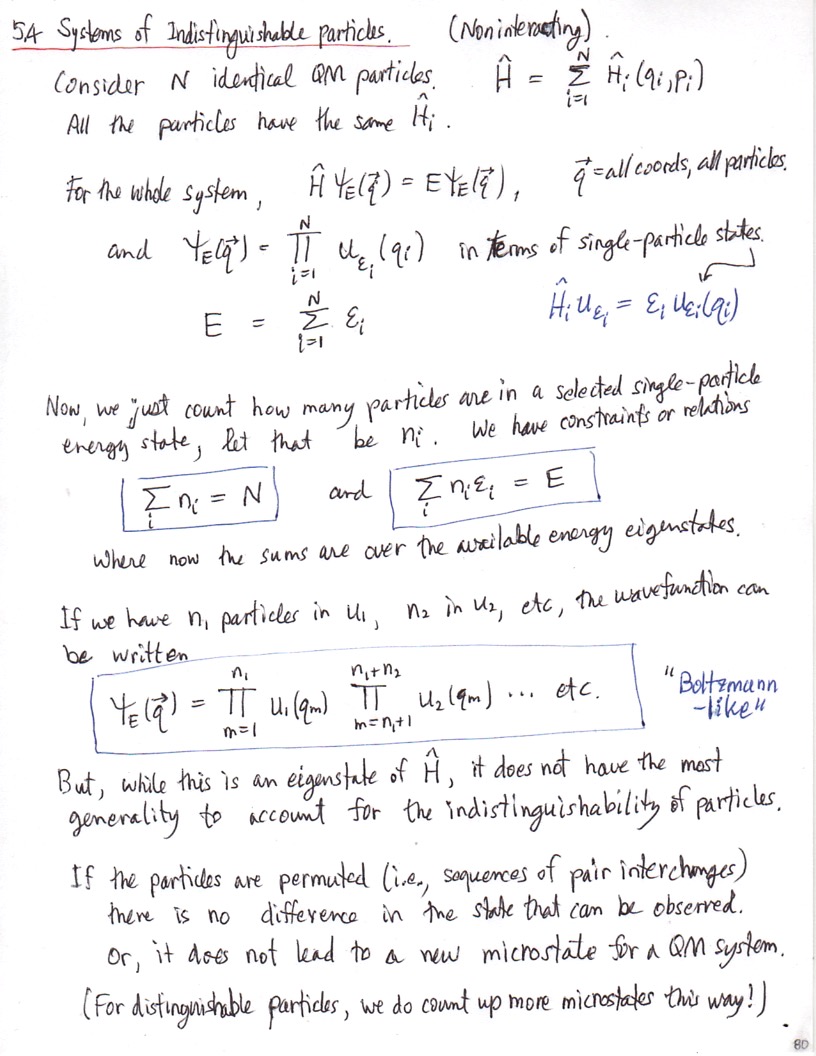 5.4 Systems of Indistinguishable particles. (Noninteracting).
Consider N identical QM particles. Ĥ = Σ_{i=1}^{N} Ĥ_i(q_i, p_i)
All the particles have the same Ĥ_i.
For the whole system, Ĥ Ψ_E(q⃗) = E Ψ_E(q⃗), q⃗ = all coords, all particles.
and Ψ_E(q⃗) = ∏_{i=1}^{N} u_{ε_i}(q_i) in terms of single-particle states.
E = Σ_{i=1}^{N} ε_i Ĥ_i u_{ε_i} = ε_i u_{ε_i}(q_i)
Now, we just count how many particles are in a selected single-particle
energy state, let that be n_i. We have constraints or relations
Σ_i n_i = N and Σ_i n_i ε_i = E
where now the sums are over the available energy eigenstates.
If we have n_1 particles in u_1, n_2 in u_2, etc, the wavefunction can
be written
Ψ_E(q⃗) = ∏_{m=1}^{n_1} u_1(q_m) ∏_{m=n_1+1}^{n_1+n_2} u_2(q_m) ... etc. "Boltzmann
-like"
But, while this is an eigenstate of Ĥ, it does not have the most
generality to account for the indistinguishability of particles.
If the particles are permuted (i.e., sequences of pair interchanges)
there is no difference in the state that can be observed.
Or, it does not lead to a new microstate for a QM system.
(For distinguishable particles, we do count up more microstates this way!)
80